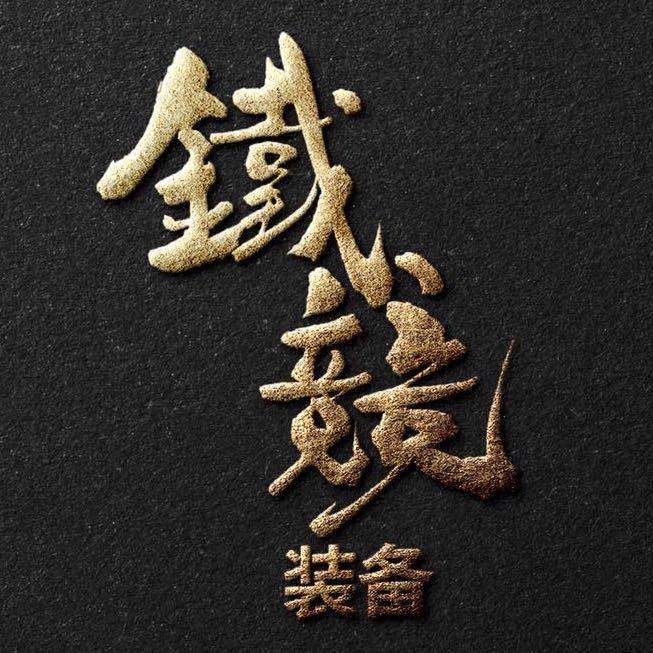 鐵
競
装备